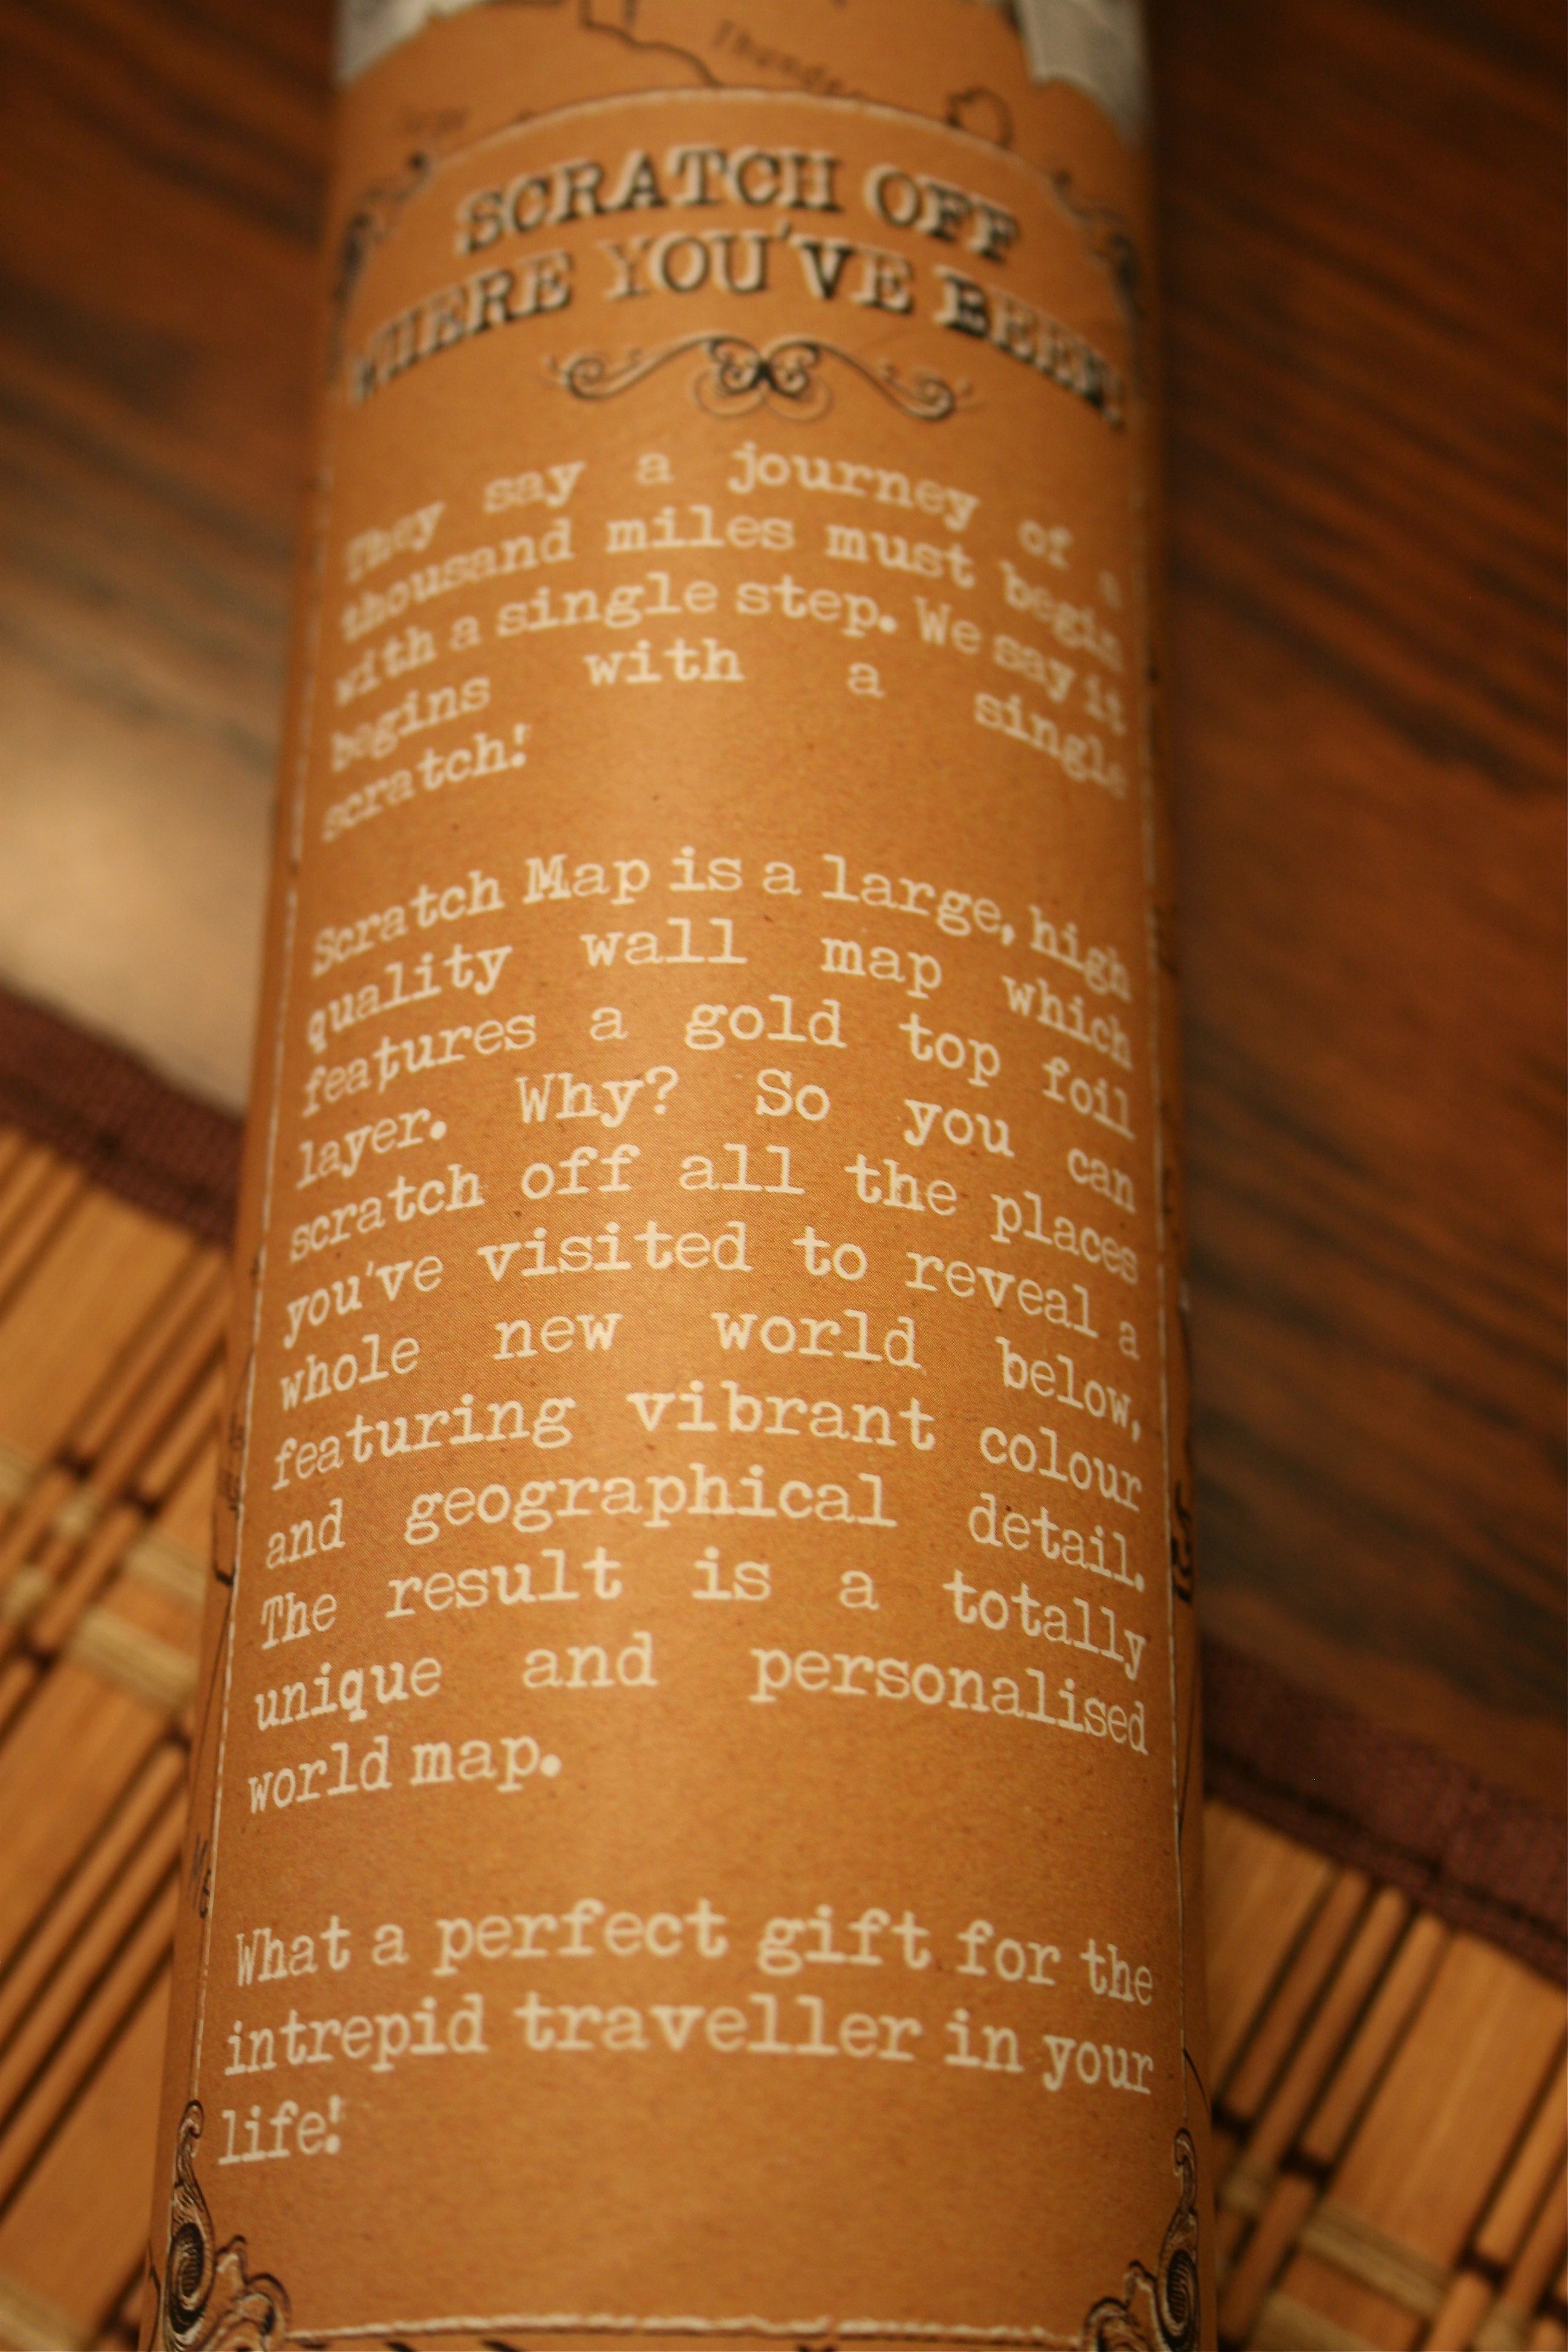 SCRATCH OFF
WHERE YOU'VE BEEN!
They say a journey of a
thousand miles must begin
with a single step. We say it
begins with a single
scratch!
Scratch Map is a large, high
quality wall map which
features a gold top foil
layer. Why? So you can
scratch off all the places
you've visited to reveal a
whole new world below,
featuring vibrant colour
and geographical detail.
The result is a totally
unique and personalised
world map.
What a perfect gift for the
intrepid traveller in your
life!